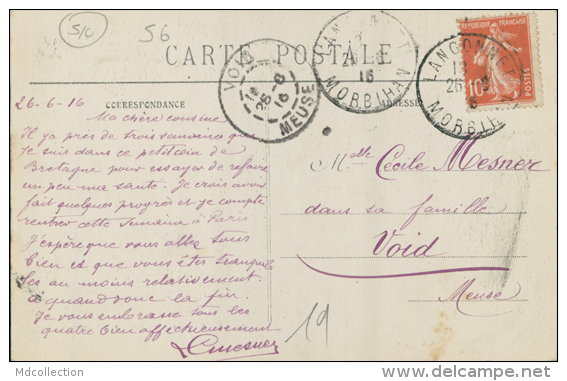 S/C
56
CARTE POSTALE
CORRESPONDANCE
ADRESSE
REPUBLIQUE FRANÇAISE
10
POSTES
VOID
28-6
16
MEUSE
16
MORBIHAN
LANGONNET
26
MORBIHAN
26-6-16
Ma chère cousine
Il ya près de trois semaines que
je suis dans ce petit coin de
Bretagne pour essayer de refaire
un peu ma santé. Je crois avoir
fait quelques progrès et je compte
rentrer cette semaine à Paris
J'espère que vous allez tous
bien et que vous êtes tranquil
les au moins relativement.
a quand donc la fin.
Je vous embrasse tous les
quatre bien affectueusement
Mlle Cécile Mesner
dans sa famille
Void
Meuse
19
Mdcollection
http://mdcollection.delcampe.net